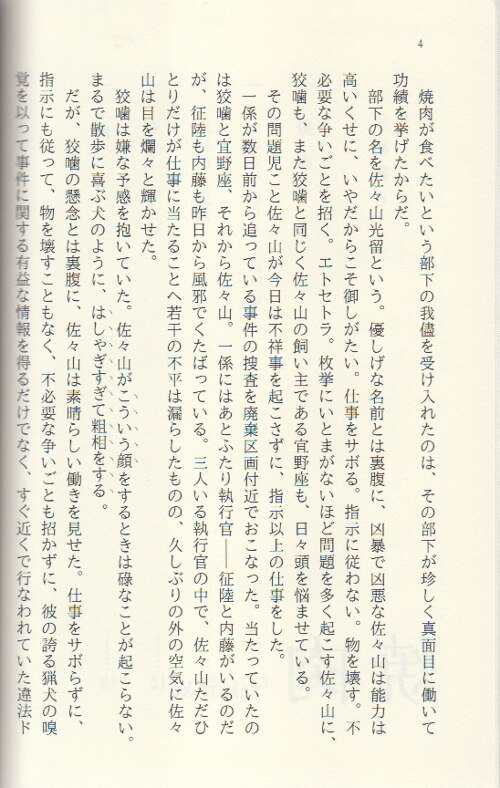 4
焼肉が食べたいという部下の我儘を受け入れたのは、その部下が珍しく真面目に働いて
功績を挙げたからだ。
部下の名を佐々山光留という。優しげな名前とは裏腹に、凶暴で凶悪な佐々山は能力は
高いくせに、いやだからこそ御しがたい。仕事をサボる。指示に従わない。物を壊す。不
必要な争いごとを招く。エトセトラ。枚挙にいとまがないほど問題を多く起こす佐々山に、
狡噛も、また狡噛と同じく佐々山の飼い主である宜野座も、日々頭を悩ませている。
その問題児こと佐々山が今日は不祥事を起こさずに、指示以上の仕事をした。
一係が数日前から追っている事件の捜査を廃棄区画付近でおこなった。当たっていたの
は狡噛と宜野座、それから佐々山。一係にはあとふたり執行官――征陸と内藤がいるのだ
が、征陸も内藤も昨日から風邪でくたばっている。三人いる執行官の中で、佐々山ただひ
とりだけが仕事に当たることへ若干の不平は漏らしたものの、久しぶりの外の空気に佐々
山は目を爛々と輝かせた。
狡噛は嫌な予感を抱いていた。佐々山がこういう顔をするときは碌なことが起こらない。
まるで散歩に喜ぶ犬のように、はしゃぎすぎて粗相をする。
だが、狡噛の懸念とは裏腹に、佐々山は素晴らしい働きを見せた。仕事をサボらずに、
指示にも従って、物を壊すこともなく、不必要な争いごとも招かずに、彼の誇る猟犬の嗅
覚を以って事件に関する有益な情報を得るだけでなく、すぐ近くで行なわれていた違法ド